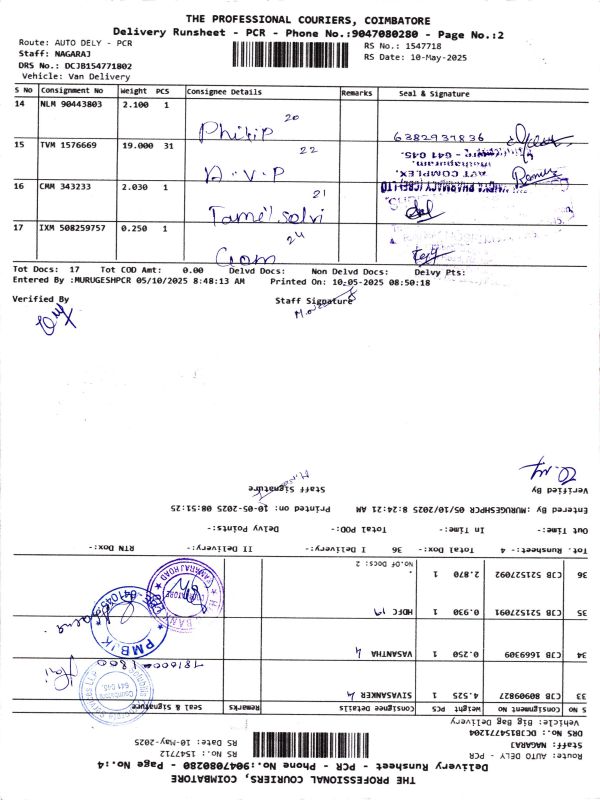 THE PROFESSIONAL COURIERS, COIMBATORE
Delivery Runsheet - PCR - Phone No.:9047080280 - Page No.:2
Route: AUTO DELY - PCR
RS No.: 1547718
Staff: NAGARAJ
RS Date: 10-May-2025
DRS No.: DCJB154771802
Vehicle: Van Delivery
S No Consignment No Weight PCS Consignee Details Remarks Seal & Signature
14 NLM 90443803 2.100 1
20
Philip
6382937836
15 TVM 1576669 19.000 31
22
A.V.P
AVT COMPLEX,
641 045.
16 CMM 343233 2.030 1
21
Tamil Selvi
17 IXM 508259757 0.250 1
24
Tot Docs: 17 Tot COD Amt: 0.00 Delvd Docs: Non Delvd Docs: Delvy Pts:
Entered By :MURUGESHPCR 05/10/2025 8:48:13 AM Printed On: 10-05-2025 08:50:18
Verified By Staff Signature
THE PROFESSIONAL COURIERS, COIMBATORE
Delivery Runsheet - PCR - Phone No.:9047080280 - Page No.:4
Route: AUTO DELY - PCR
RS No.: 1547712
Staff: NAGARAJ
RS Date: 10-May-2025
DRS No.: DCJB154771204
Vehicle: Big Bag Bike
S NO Consignment NO Weight PCS Consignee Details Remarks Seal & Signature
33 CJB 80909827 4.525 1 SIVASANKER 4
34 CJB 1669309 0.250 1 VASANTHA 4
35 CJB 521527091 0.930 1 HDFC 19
PMBJK
641045
36 CJB 521527092 2.870 1
No.Of Docs: 2
Tot. Runsheet:- 4 Total Dox:- 36 I Delivery:- II Delivery:- RTN Dox:-
Out Time:- In Time:- Total POD:- Delvy Points:-
Entered By :MURUGESHPCR 05/10/2025 8:24:21 AM Printed on: 10-05-2025 08:51:25
Verified By Staff Signature